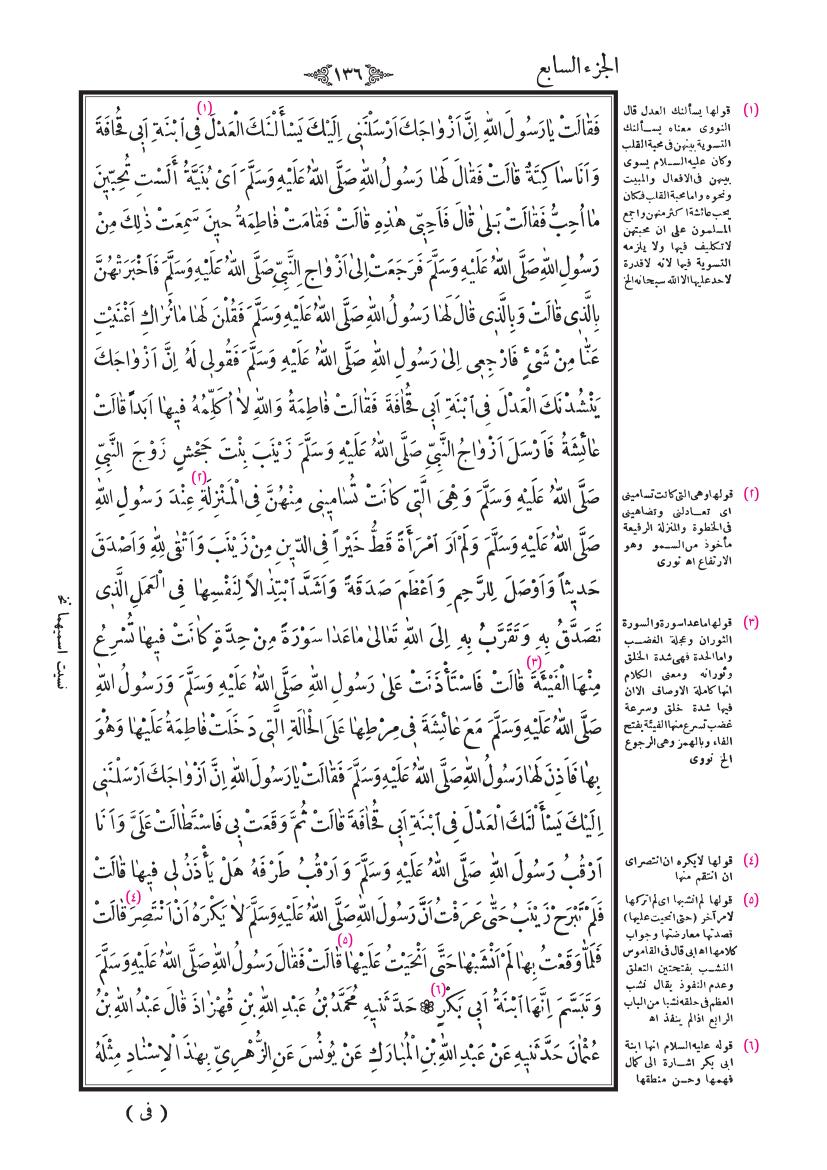 الجزء السابع
١٣٦
فَقَالَتْ يَا رَسُولَ اللهِ اِنَّ اَزْوَاجَكَ اَرْسَلْنَنِى اِلَيْكَ يَسْأَلْنَكَ الْعَدْلَ (١) فِى ابْنَةِ اَبِى قُحَافَةَ
وَاَنَا سَاكِتَةٌ قَالَتْ فَقَالَ لَهَا رَسُولُ اللهِ صَلَّى اللهُ عَلَيْهِ وَسَلَّمَ اَىْ بُنَيَّةُ أَلَسْتِ تُحِبِّينَ
مَا اُحِبُّ فَقَالَتْ بَلىٰ قَالَ فَاَحِبِّى هٰذِهِ قَالَتْ فَقَامَتْ فَاطِمَةُ حِينَ سَمِعَتْ ذٰلِكَ مِنْ
رَسُولِ اللهِ صَلَّى اللهُ عَلَيْهِ وَسَلَّمَ فَرَجَعَتْ اِلىٰ اَزْوَاجِ النَّبِىِّ صَلَّى اللهُ عَلَيْهِ وَسَلَّمَ فَاَخْبَرَتْهُنَّ
بِالَّذِى قَالَتْ وَبِالَّذِى قَالَ لَهَا رَسُولُ اللهِ صَلَّى اللهُ عَلَيْهِ وَسَلَّمَ فَقُلْنَ لَهَا مَا نُرَاكِ اَغْنَيْتِ
عَنَّا مِنْ شَىْءٍ فَارْجِعِى اِلىٰ رَسُولِ اللهِ صَلَّى اللهُ عَلَيْهِ وَسَلَّمَ فَقُولِى لَهُ اِنَّ اَزْوَاجَكَ
يَنْشُدْنَكَ الْعَدْلَ فِى ابْنَةِ اَبِى قُحَافَةَ فَقَالَتْ فَاطِمَةُ وَاللهِ لاَ اُكَلِّمُهُ فِيهَا اَبَداً قَالَتْ
عَائِشَةُ فَاَرْسَلَ اَزْوَاجُ النَّبِىِّ صَلَّى اللهُ عَلَيْهِ وَسَلَّمَ زَيْنَبَ بِنْتَ جَحْشٍ زَوْجَ النَّبِىِّ
صَلَّى اللهُ عَلَيْهِ وَسَلَّمَ وَهِىَ الَّتِى كَانَتْ تُسَامِينِى مِنْهُنَّ فِى الْمَنْزِلَةِ (٢) عِنْدَ رَسُولِ اللهِ
صَلَّى اللهُ عَلَيْهِ وَسَلَّمَ وَلَمْ اَرَ امْرَأَةً قَطُّ خَيْراً فِى الدِّينِ مِنْ زَيْنَبَ وَاَتْقىٰ لِلّٰهِ وَاَصْدَقَ
حَدِيثاً وَاَوْصَلَ لِلرَّحِمِ وَاَعْظَمَ صَدَقَةً وَاَشَدَّ ابْتِذَالاً لِنَفْسِهَا فِى الْعَمَلِ الَّذِى
تَصَدَّقُ بِهِ وَتَقَرَّبُ بِهِ اِلَى اللهِ تَعَالىٰ مَاعَدَا سَوْرَةً مِنْ حِدَّةٍ كَانَتْ فِيهَا تُسْرِعُ
مِنْهَا الْفَيْئَةَ (٣) قَالَتْ فَاسْتَأْذَنَتْ عَلىٰ رَسُولِ اللهِ صَلَّى اللهُ عَلَيْهِ وَسَلَّمَ وَرَسُولُ اللهِ
صَلَّى اللهُ عَلَيْهِ وَسَلَّمَ مَعَ عَائِشَةَ فِى مِرْطِهَا عَلَى الْحَالَةِ الَّتِى دَخَلَتْ فَاطِمَةُ عَلَيْهَا وَهُوَ
بِهَا فَاَذِنَ لَهَا رَسُولُ اللهِ صَلَّى اللهُ عَلَيْهِ وَسَلَّمَ فَقَالَتْ يَا رَسُولَ اللهِ اِنَّ اَزْوَاجَكَ اَرْسَلْنَنِى
اِلَيْكَ يَسْأَلْنَكَ الْعَدْلَ فِى ابْنَةِ اَبِى قُحَافَةَ قَالَتْ ثُمَّ وَقَعَتْ بِى فَاسْتَطَالَتْ عَلَىَّ وَاَنَا
اَرْقُبُ رَسُولَ اللهِ صَلَّى اللهُ عَلَيْهِ وَسَلَّمَ وَاَرْقُبُ طَرْفَهُ هَلْ يَأْذَنُ لِى فِيهَا قَالَتْ
فَلَمْ تَبْرَحْ زَيْنَبُ حَتّٰى عَرَفْتُ اَنَّ رَسُولَ اللهِ صَلَّى اللهُ عَلَيْهِ وَسَلَّمَ لاَ يَكْرَهُ اَنْ اَنْتَصِرَ (٤) قَالَتْ
فَلَمَّا وَقَعْتُ بِهَا لَمْ اَنْشَبْهَا حَتّٰى اَنْحَيْتُ عَلَيْهَا (٥) قَالَتْ فَقَالَ رَسُولُ اللهِ صَلَّى اللهُ عَلَيْهِ وَسَلَّمَ
وَتَبَسَّمَ اِنَّهَا ابْنَةُ اَبِى بَكْرٍ (٦) ❁ حَدَّثَنِيهِ مُحَمَّدُ بْنُ عَبْدِ اللهِ بْنِ قُهْزَاذَ قَالَ عَبْدُ اللهِ بْنُ
عُثْمَانَ حَدَّثَنِيهِ عَنْ عَبْدِ اللهِ بْنِ الْمُبَارَكِ عَنْ يُونُسَ عَنِ الزُّهْرِىِّ بِهٰذَا الْاِسْنَادِ مِثْلَهُ
(١) قولها يسألنك العدل قال
النووى معناه يسألنك
التسوية بينهن فى محبة القلب
وكان عليه السلام يسوى
بينهن فى الافعال والمبيت
ونحوه واما محبة القلب فكان
يحب عائشة اكثر منهن واجمع
المسلمون على ان محبتهن
لا تكليف فيها ولا يلزمه
التسوية فيها لانه لا قدرة
لاحد عليها الا الله سبحانه الخ
(٢) قولها وهى التى كانت تسامينى
اى تعادلنى وتضاهينى
فى الحظوة والمنزلة الرفيعة
مأخوذ من السمو وهو
الارتفاع اه نووى
(٣) قولها ماعدا سورة والسورة
الثوران وعجلة الغضب
واما الحدة فهى شدة الخلق
وثورانه ومعنى الكلام
انها كاملة الاوصاف الا ان
فيها شدة خلق وسرعة
غضب تسرع منها الفيئة بفتح
الفاء وبالهمز وهى الرجوع
الخ نووى
(٤) قولها لا يكره ان انتصر اى
ان انتقم منها
(٥) قولها لم انشبها اى لم اتركها
لامر آخر (حتى انحيت عليها)
قصدتها معارضتها وجواب
كلامها اه ابى قال فى القاموس
النشب بفتحتين التعلق
وعدم النفوذ يقال نشب
العظم فى حلقه نشبا من الباب
الرابع اذا لم ينفذ اه
(٦) قوله عليه السلام انها ابنة
ابى بكر اشارة الى كمال
فهمها وحسن منطقها
( فى )